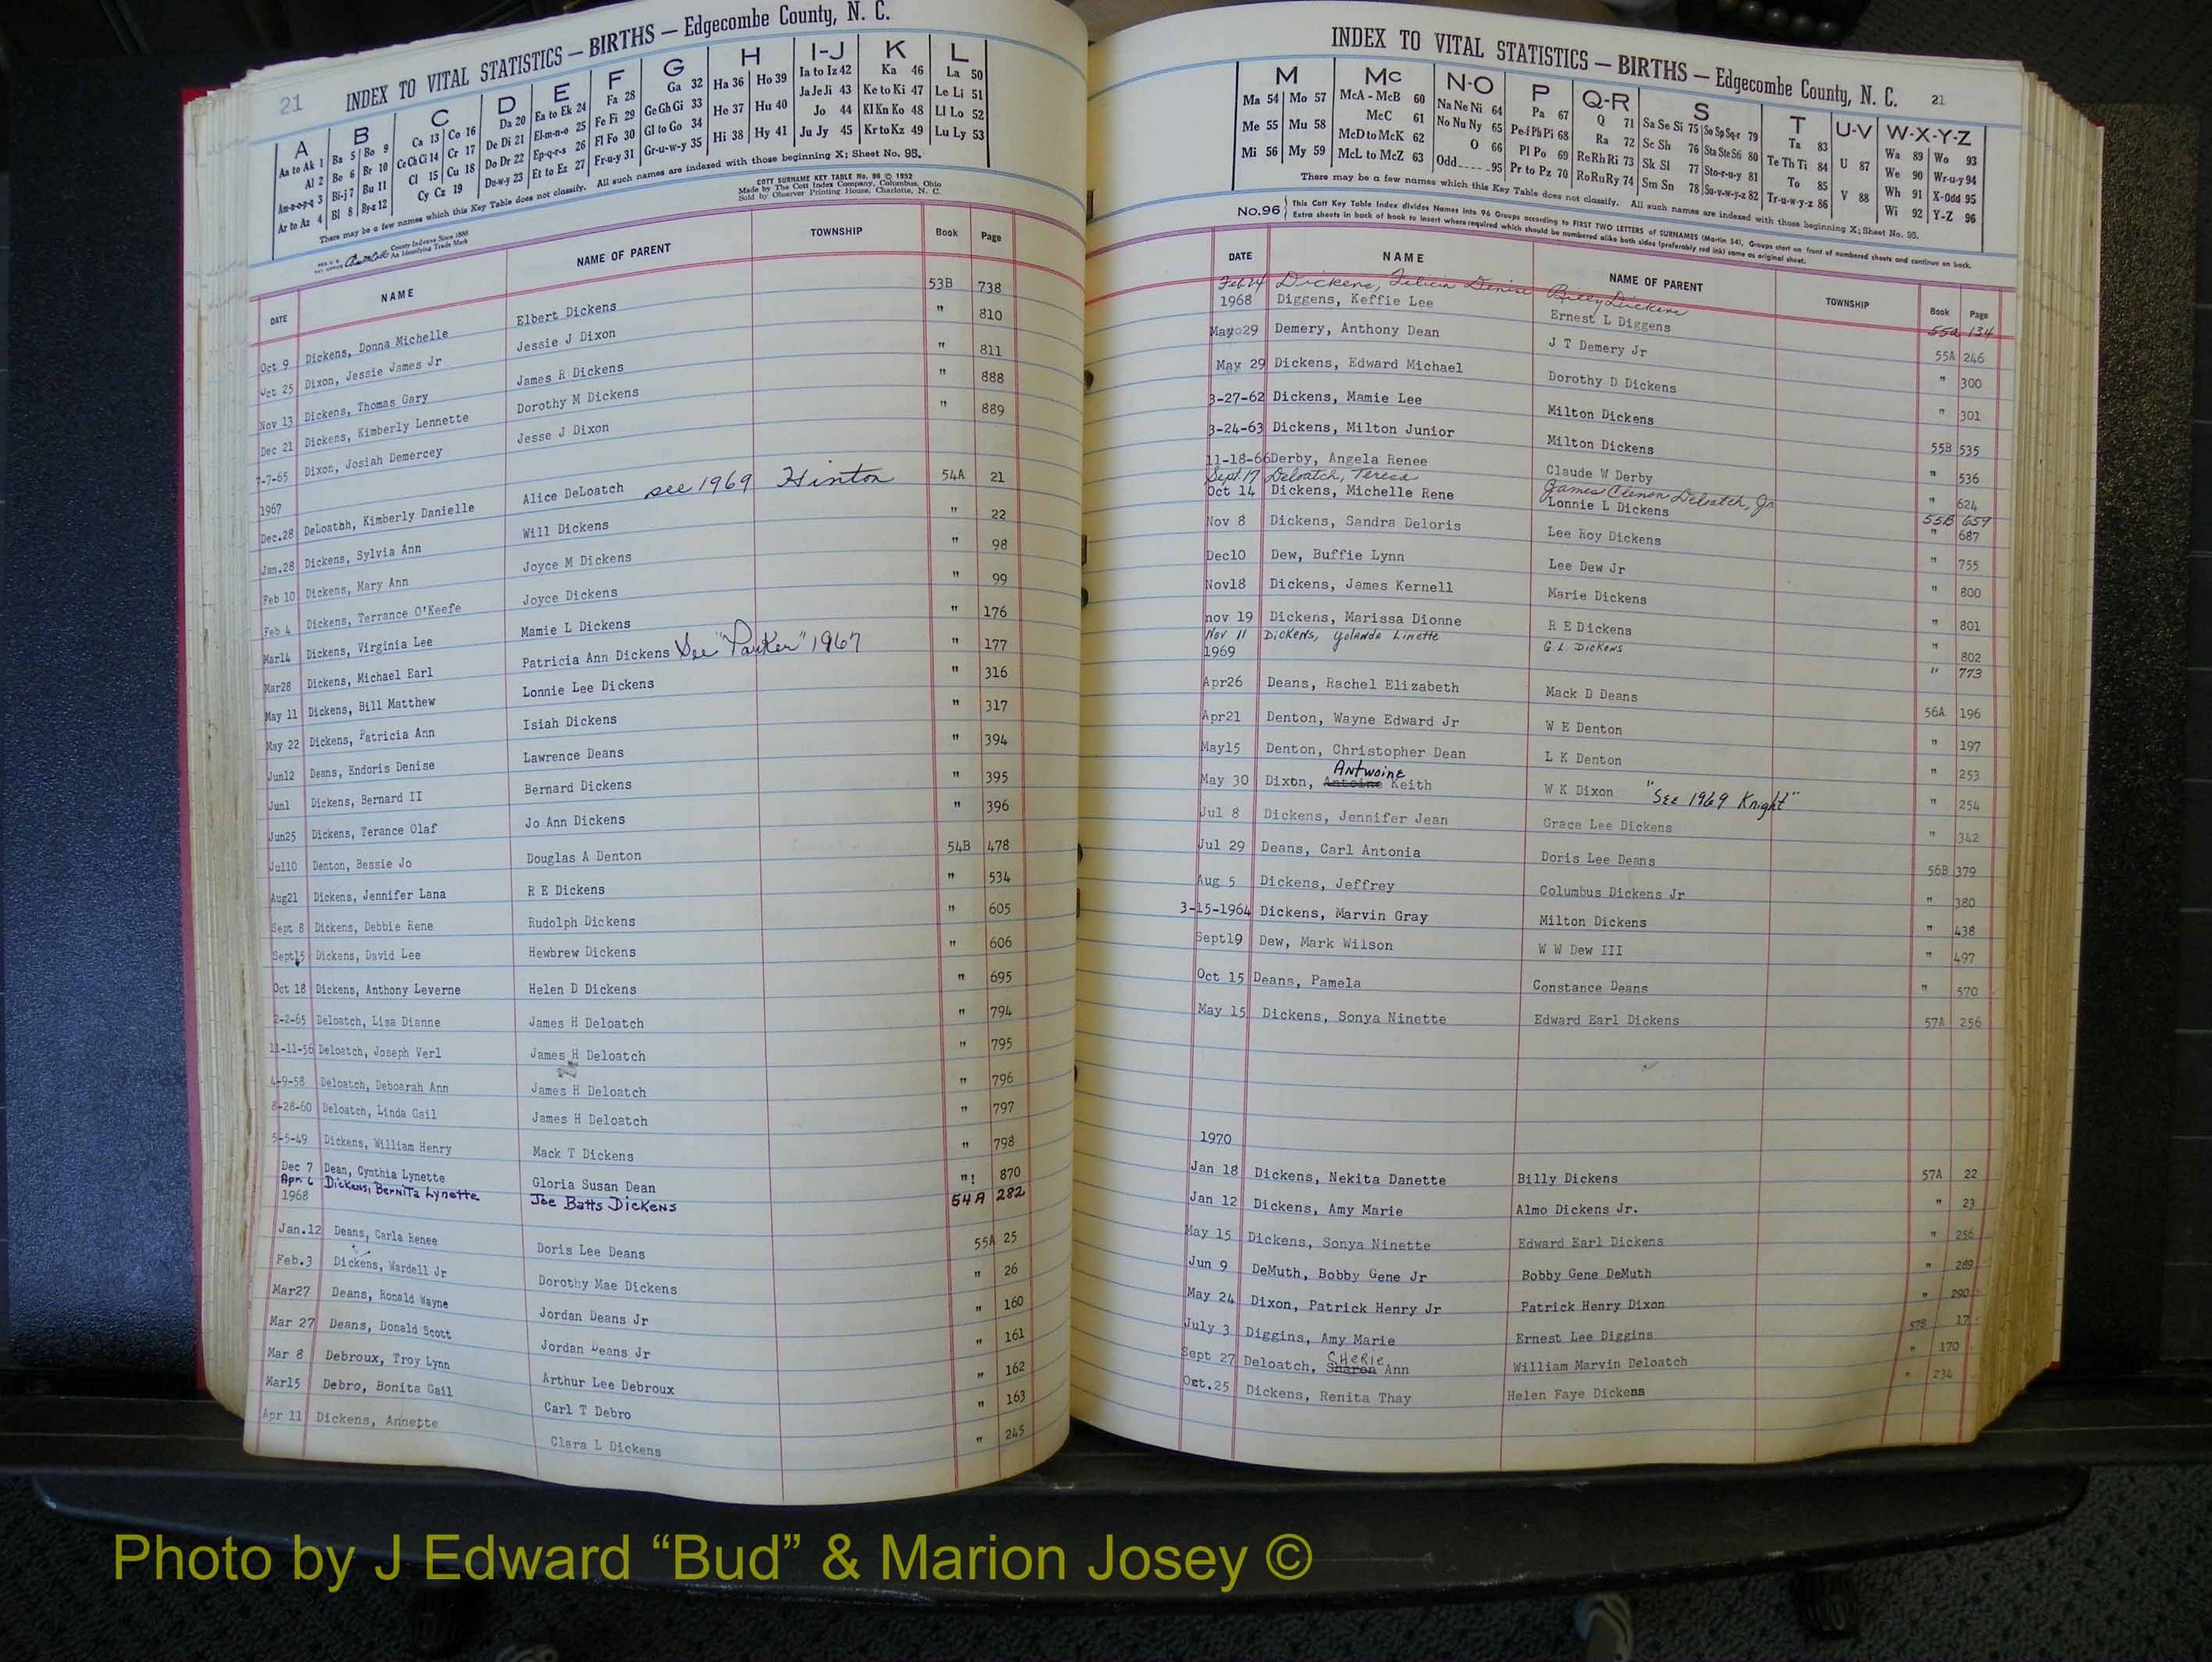 21 INDEX TO VITAL STATISTICS — BIRTHS — Edgecombe County, N. C.
A B C D E F G H I-J K L
Aa to Ak 1 Ba 5 Bo 9 Ca 13 Co 16 Da 20 Ea to Ek 24 Fa 28 Ga 32 Ha 36 Ho 39 Ia to Iz 42 Ka 46 La 50
Al 2 Be 6 Br 10 Ce Ch Ci 14 Cr 17 De Di 21 El-m-n-o 25 Fe Fi 29 Ge Gh Gi 33 He 37 Hu 40 Ja Je Ji 43 Ke to Ki 47 Le Li 51
Am-n-o-p-q 3 Bi-j 7 Bu 11 Cl 15 Cu 18 Do Dr 22 Ep-q-r-s 26 Fl Fo 30 Gl to Go 34 Hi 38 Hy 41 Jo 44 Kl Kn Ko 48 Ll Lo 52
Ar to Az 4 Bl 8 By-z 12 Cy Cz 19 Du-w-y 23 Et to Ez 27 Fr-u-y 31 Gr-u-w-y 35 Ju Jy 45 Kr to Kz 49 Lu Ly 53
There may be a few names which this Key Table does not classify. All such names are indexed with those beginning X; Sheet No. 95.
COTT SURNAME KEY TABLE No. 96 © 1952
Made by The Cott Index Company, Columbus, Ohio
Sold by Observer Printing House, Charlotte, N. C.
County Indexes Since 1888
An Identifying Trade Mark
DATE NAME NAME OF PARENT TOWNSHIP Book Page
Oct 9 Dickens, Donna Michelle Elbert Dickens 53B 738
Oct 25 Dixon, Jessie James Jr Jessie J Dixon " 810
Nov 13 Dickens, Thomas Gary James R Dickens " 811
Dec 21 Dickens, Kimberly Lennette Dorothy M Dickens " 888
7-7-65 Dixon, Josiah Demercey Jesse J Dixon " 889
1967
Dec.28 DeLoathh, Kimberly Danielle Alice DeLoatch see 1969 Hinton 54A 21
Jan.28 Dickens, Sylvia Ann Will Dickens " 22
Feb 10 Dickens, Mary Ann Joyce M Dickens " 98
Feb 4 Dickens, Terrance O'Keefe Joyce Dickens " 99
Mar14 Dickens, Virginia Lee Mamie L Dickens " 176
Mar28 Dickens, Michael Earl Patricia Ann Dickens See "Parker" 1967 " 177
May 11 Dickens, Bill Matthew Lonnie Lee Dickens " 316
May 22 Dickens, Patricia Ann Isiah Dickens " 317
Jun12 Deans, Endoris Denise Lawrence Deans " 394
Jun1 Dickens, Bernard II Bernard Dickens " 395
Jun25 Dickens, Terance Olaf Jo Ann Dickens " 396
Jul10 Denton, Bessie Jo Douglas A Denton 54B 478
Aug21 Dickens, Jennifer Lana R E Dickens " 534
Sept 8 Dickens, Debbie Rene Rudolph Dickens " 605
Sept15 Dickens, David Lee Hewbrew Dickens " 606
Oct 18 Dickens, Anthony Leverne Helen D Dickens " 695
2-2-65 Deloatch, Lisa Dianne James H Deloatch " 794
11-11-56 Deloatch, Joseph Verl James H Deloatch " 795
4-9-58 Deloatch, Deboarah Ann James H Deloatch " 796
8-28-60 Deloatch, Linda Gail James H Deloatch " 797
5-5-49 Dickens, William Henry Mack T Dickens " 798
Dec 7 Dean, Cynthia Lynette Gloria Susan Dean "! 870
Apr. 6 Dickens, Bernita Lynette Joe Batts Dickens 54A 282
1968
Jan.12 Deans, Carla Renee Doris Lee Deans 55A 25
Feb.3 Dickens, Wardell Jr Dorothy Mae Dickens " 26
Mar27 Deans, Ronald Wayne Jordan Deans Jr " 160
Mar 27 Deans, Donald Scott Jordan Deans Jr " 161
Mar 8 Debroux, Troy Lynn Arthur Lee Debroux " 162
Mar15 Debro, Bonita Gail Carl T Debro " 163
Apr 11 Dickens, Annette Clara L Dickens " 245
INDEX TO VITAL STATISTICS — BIRTHS — Edgecombe County, N. C. 21
M Mc N-O P Q-R S T U-V W-X-Y-Z
Ma 54 Mo 57 McA - McB 60 Na Ne Ni 64 Pa 67 Q 71 Sa Se Si 75 So Sp Sq-r 79 Ta 83 U 87 Wa 89 Wo 93
Me 55 Mu 58 McC 61 No Nu Ny 65 Pe-f Ph Pi 68 Ra 72 Sc Sh 76 Sta Ste Sti 80 Te Th Ti 84 V 88 We 90 Wr-u-y 94
Mi 56 My 59 McD to McK 62 O 66 Pl Po 69 Re Rh Ri 73 Sk Sl 77 Sto-r-u-y 81 To 85 Wh 91 X-Odd 95
McL to McZ 63 Odd 95 Pr to Pz 70 Ro Ru Ry 74 Sm Sn 78 Su-v-w-y-z 82 Tr-u-w-y-z 86 Wi 92 Y-Z 96
There may be a few names which this Key Table does not classify. All such names are indexed with those beginning X; Sheet No. 95.
No.96 This Cott Key Table Index divides Names into 96 Groups according to FIRST TWO LETTERS of SURNAMES (Martin 54). Groups start on front of numbered sheets and continue on back.
Extra sheets in back of book to insert where required which should be numbered alike both sides (preferably red ink) same as original sheet.
DATE NAME NAME OF PARENT TOWNSHIP Book Page
Feb 24 Dickens, Felicia Denise Billy Dickens 55a 134
1968 Diggens, Keffie Lee Ernest L Diggens 55A 246
May 29 Demery, Anthony Dean J T Demery Jr " 300
May 29 Dickens, Edward Michael Dorothy D Dickens " 301
3-27-62 Dickens, Mamie Lee Milton Dickens 55B 535
3-24-63 Dickens, Milton Junior Milton Dickens " 536
11-18-66 Derby, Angela Renee Claude W Derby " 624
Sept. 17 Deloatch, Teresa James Clenon Deloatch, Jr 55B 659
Oct 14 Dickens, Michelle Rene Lonnie L Dickens " 687
Nov 8 Dickens, Sandra Deloris Lee Roy Dickens " 755
Dec10 Dew, Buffie Lynn Lee Dew Jr " 800
Nov18 Dickens, James Kernell Marie Dickens " 801
nov 19 Dickens, Marissa Dionne R E Dickens " 802
Nov 11 Dickens, Yolanda Linette G L. Dickens " 773
1969
Apr26 Deans, Rachel Elizabeth Mack D Deans 56A 196
Apr21 Denton, Wayne Edward Jr W E Denton " 197
May15 Denton, Christopher Dean L K Denton " 253
Antwoine
May 30 Dixon, Antoine Keith W K Dixon "See 1969 Knight" " 254
Jul 8 Dickens, Jennifer Jean Grace Lee Dickens " 342
Jul 29 Deans, Carl Antonia Doris Lee Deans 56B 379
Aug 5 Dickens, Jeffrey Columbus Dickens Jr " 380
3-15-1964 Dickens, Marvin Gray Milton Dickens " 438
Sept19 Dew, Mark Wilson W W Dew III " 497
Oct 15 Deans, Pamela Constance Deans " 570
May 15 Dickens, Sonya Ninette Edward Earl Dickens 57A 256
1970
Jan 18 Dickens, Nekita Danette Billy Dickens 57A 22
Jan 12 Dickens, Amy Marie Almo Dickens Jr. " 23
May 15 Dickens, Sonya Ninette Edward Earl Dickens " 256
Jun 9 DeMuth, Bobby Gene Jr Bobby Gene DeMuth " 289
May 24 Dixon, Patrick Henry Jr Patrick Henry Dixon " 290
July 3 Diggins, Amy Marie Ernest Lee Diggins 57B 17
CHERIE
Sept 27 Deloatch, Sharon Ann William Marvin Deloatch " 170
Oct.25 Dickens, Renita Thay Helen Faye Dickens " 234
Photo by J Edward “Bud” & Marion Josey ©